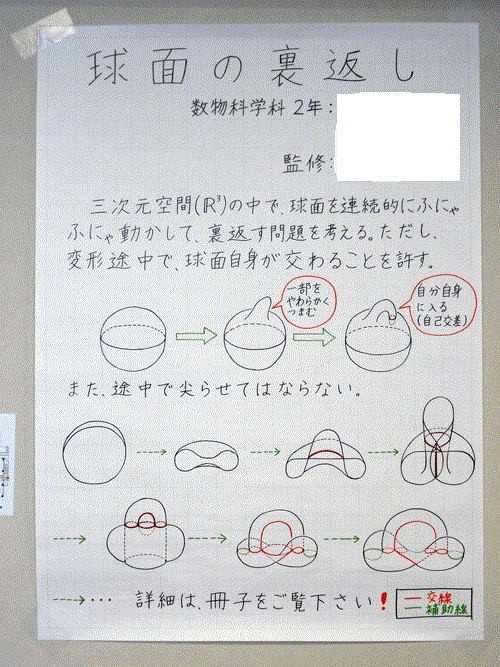 球面の裏返し
数物科学科2年:
監修:
三次元空間(ℝ³)の中で、球面を連続的にふにゃ
ふにゃ動かして、裏返す問題を考える。ただし、
変形途中で、球面自身が交わることを許す。
一部を
やわらかく
つまむ
自分自身
に入る
(自己交差)
また、途中で尖らせてはならない。
… 詳細は、冊子をご覧下さい!
交線
補助線